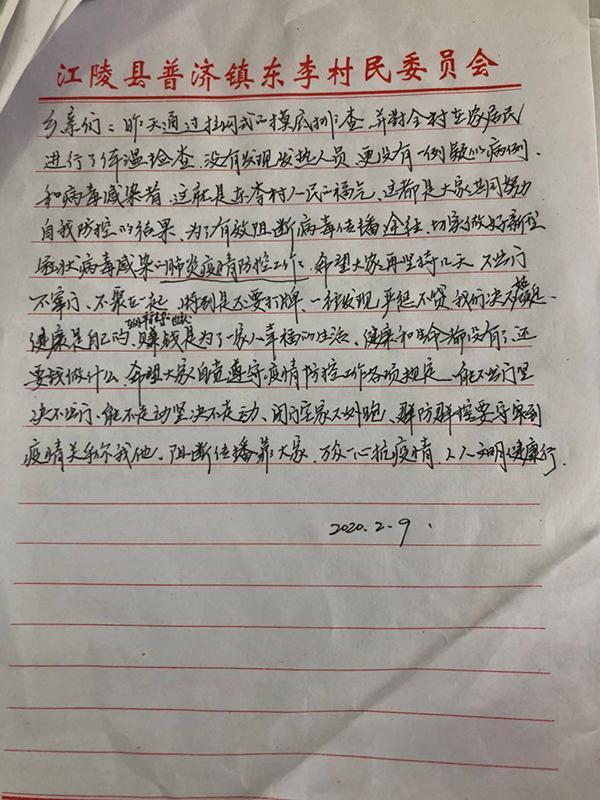 江陵县普济镇东李村民委员会
乡亲们：昨天通过挂网式的摸底排查，并对全村在家居民
进行了体温检查，没有发现发热人员，更没有一例疑似病例、
和病毒感染者，这就是东李村人民的福气，这都是大家共同努力
自我防控的结果、为了有效阻断病毒传播途径，切实做好新型
冠状病毒感染的肺炎疫情防控工作，希望大家再坚持几天 不出门
不串门、不聚在一起 特别是不要打牌、一经发现 严惩不贷，我们决不
健康是自己的、赚钱是为了一家人幸福的生活、健康和生命都没有了，还
要钱做什么，希望大家自觉遵守疫情防控工作各项规定 能不出门坚
决不出门、能不走动坚决不走动、闭门宅家不外跑、群防群控要守牢
疫情关系你我他，阻断传播靠大家，万众一心抗疫情，人人文明健康行．
2020.2.9．